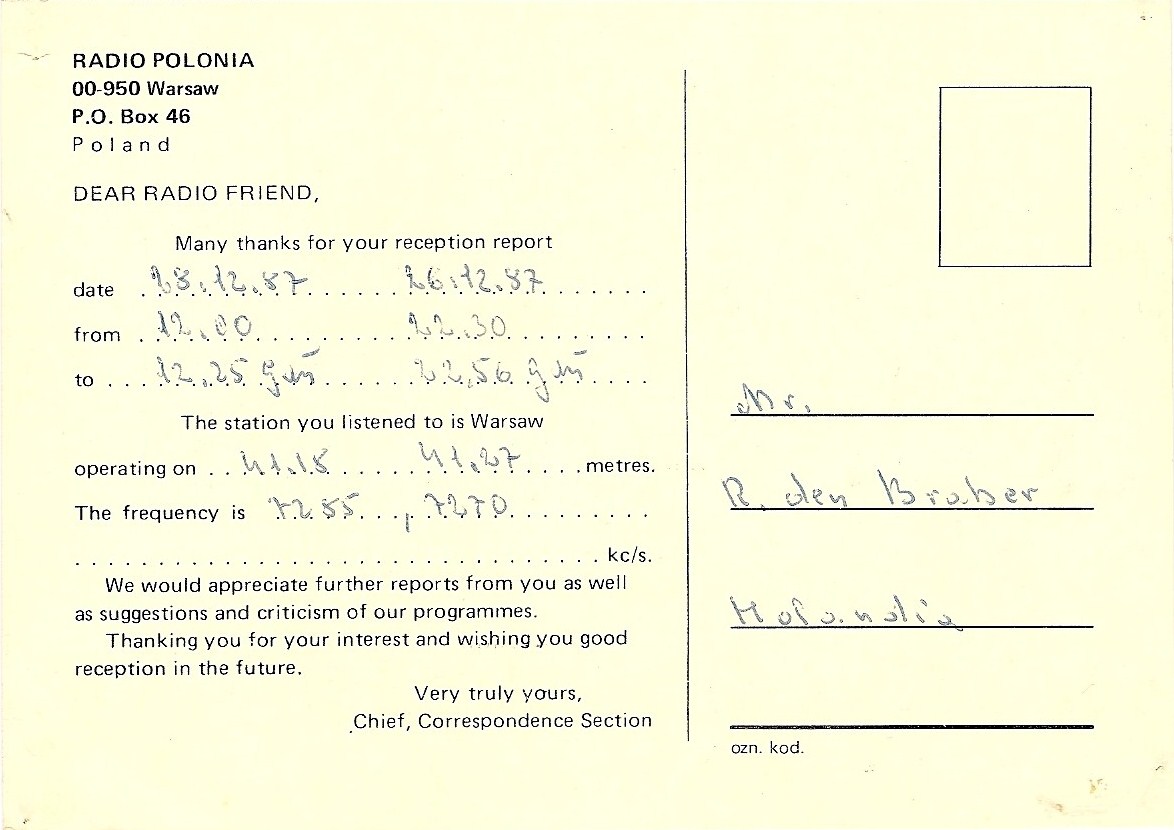 RADIO POLONIA
00-950 Warsaw
P.O. Box 46
Poland
DEAR RADIO FRIEND,
Many thanks for your reception report
date 28.12.87 26.12.87
from 12.00 22.30
to 12.25 gmt 22.56 gmt
The station you listened to is Warsaw
operating on 41.18 41.27 metres.
The frequency is 7285, 7270
kc/s.
We would appreciate further reports from you as well
as suggestions and criticism of our programmes.
Thanking you for your interest and wishing you good
reception in the future.
Very truly yours,
Chief, Correspondence Section
Mr.
R. den Braber
Holandia
ozn. kod.